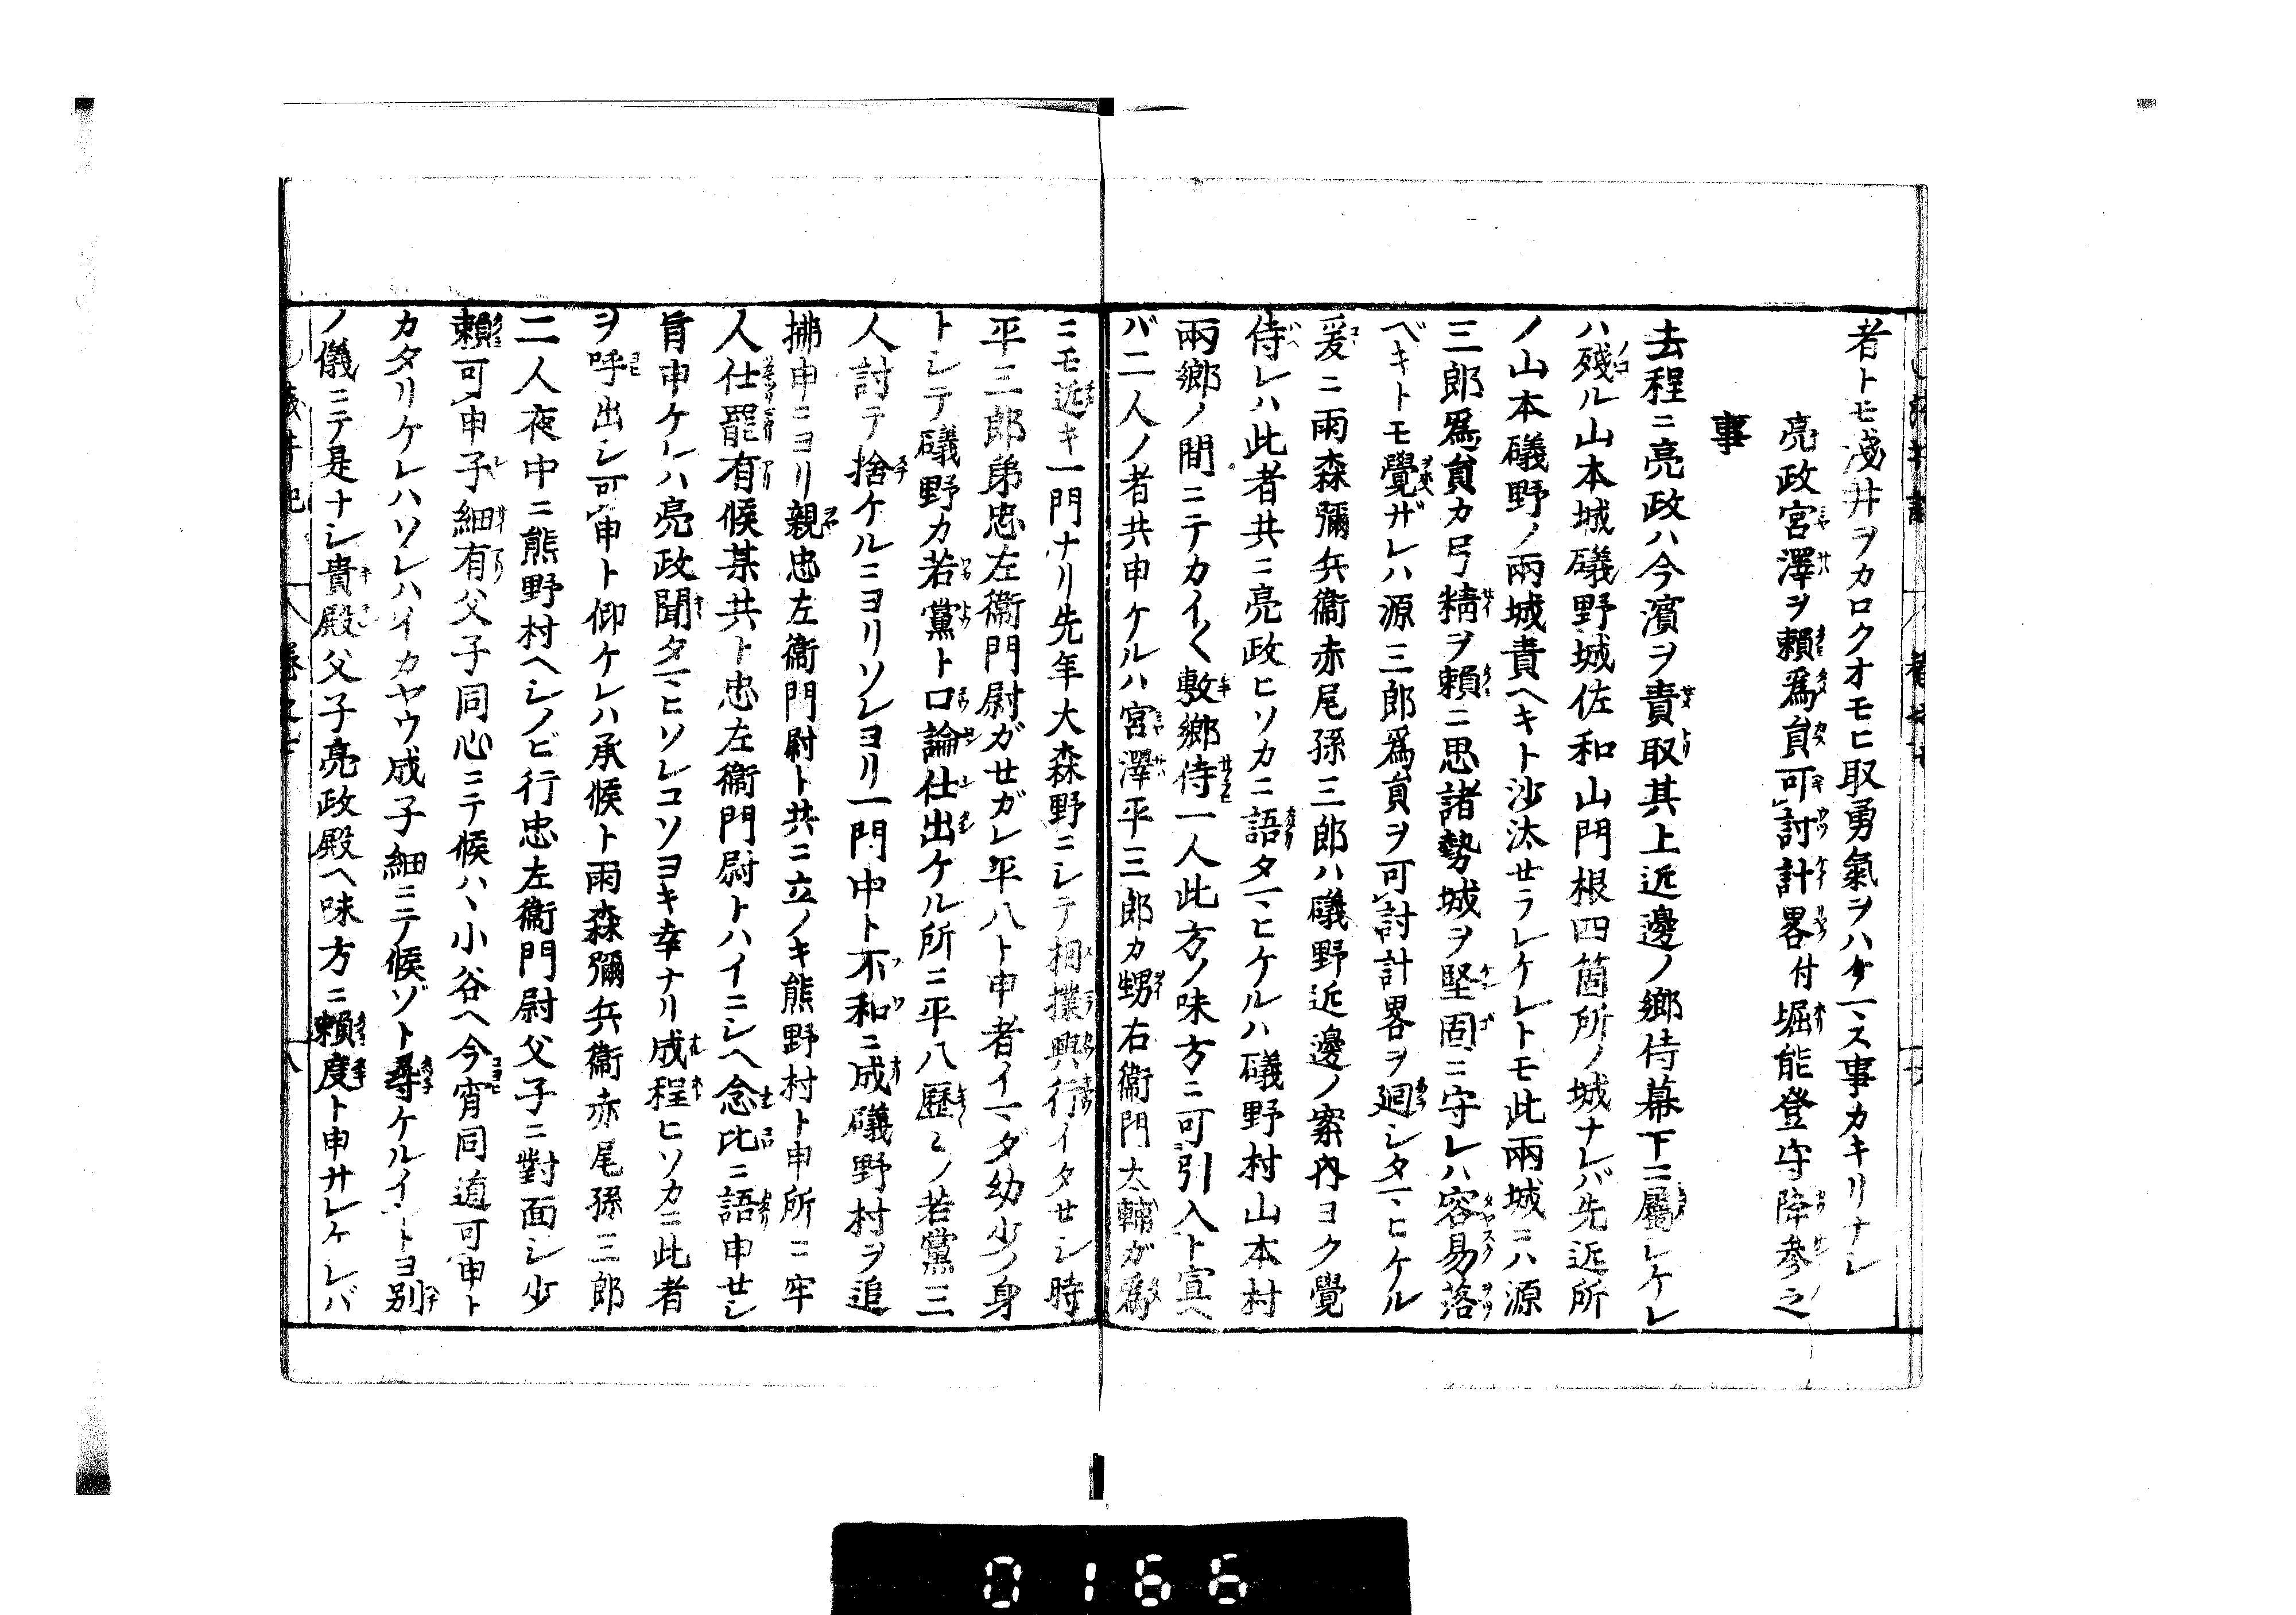 者トモ淺井ヲカロクオモヒ取勇氣ヲハケマス事カキリナシ
亮政宮澤ヲ賴爲員可討計畧付堀能登守降參之
事
去程ニ亮政ハ今濱ヲ責取其上近邊ノ鄉侍幕下ニ屬シケレ
ハ殘ル山本城礒野城佐和山門根四箇所ノ城ナレバ先近所
ノ山本礒野ノ兩城責ヘキト沙汰セラレケレトモ此兩城ニハ源
三郎爲員カ弓精ヲ賴ニ思諸勢城ヲ堅固ニ守レハ容易落
ベキトモ覺ザレハ源三郎爲員ヲ可討計畧ヲ廻シタマヒケル
爰ニ雨森彌兵衞赤尾孫三郎ハ礒野近邊ノ案內ヨク覺
侍レハ此者共ニ亮政ヒソカニ語タマヒケルハ礒野村山本村
兩鄉ノ間ニテカイ〱敷鄉侍一人此方ノ味方ニ可引入ト宣ヘ
バ二人ノ者共申ケルハ宮澤平三郎カ甥右衞門太輔ガ爲
ニモ近キ一門ナリ先年大森野ニシテ相撲興行イタセシ時
平三郎弟忠左衞門尉ガセガレ平八ト申者イマダ幼少ノ身
トシテ礒野カ若黨ト口論仕出ケル所ニ平八歷〻ノ若黨三
人討テ捨ケルニヨリソレヨリ一門中ト不和ニ成礒野村ヲ追
拂申ニヨリ親忠左衞門尉ト共ニ立ノキ熊野村ト申所ニ牢
人仕罷有候某共ト忠左衞門尉トハイニシヘ念比ニ語申セシ
旨申ケレハ亮政聞タマヒソレコソヨキ幸ナリ成程ヒソカニ此者
ヲ呼出シ可申ト仰ケレハ承候ト雨森彌兵衞赤尾孫三郎
二人夜中ニ熊野村ヘシノビ行忠左衞門尉父子ニ對面シ少
賴可申子細有父子同心ニテ候ハヽ小谷ヘ今宵同道可申ト
カタリケレハソレハイカヤウ成子細ニテ候ゾト尋ケルイヤトヨ別
ノ儀ニテ是ナシ貴殿父子亮政殿ヘ味方ニ賴度ト申サレケレバ